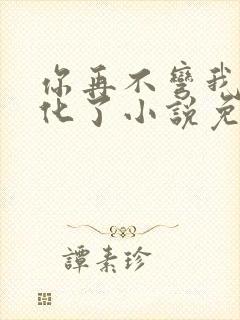 你再不彎我
化了小說免
譚素珍